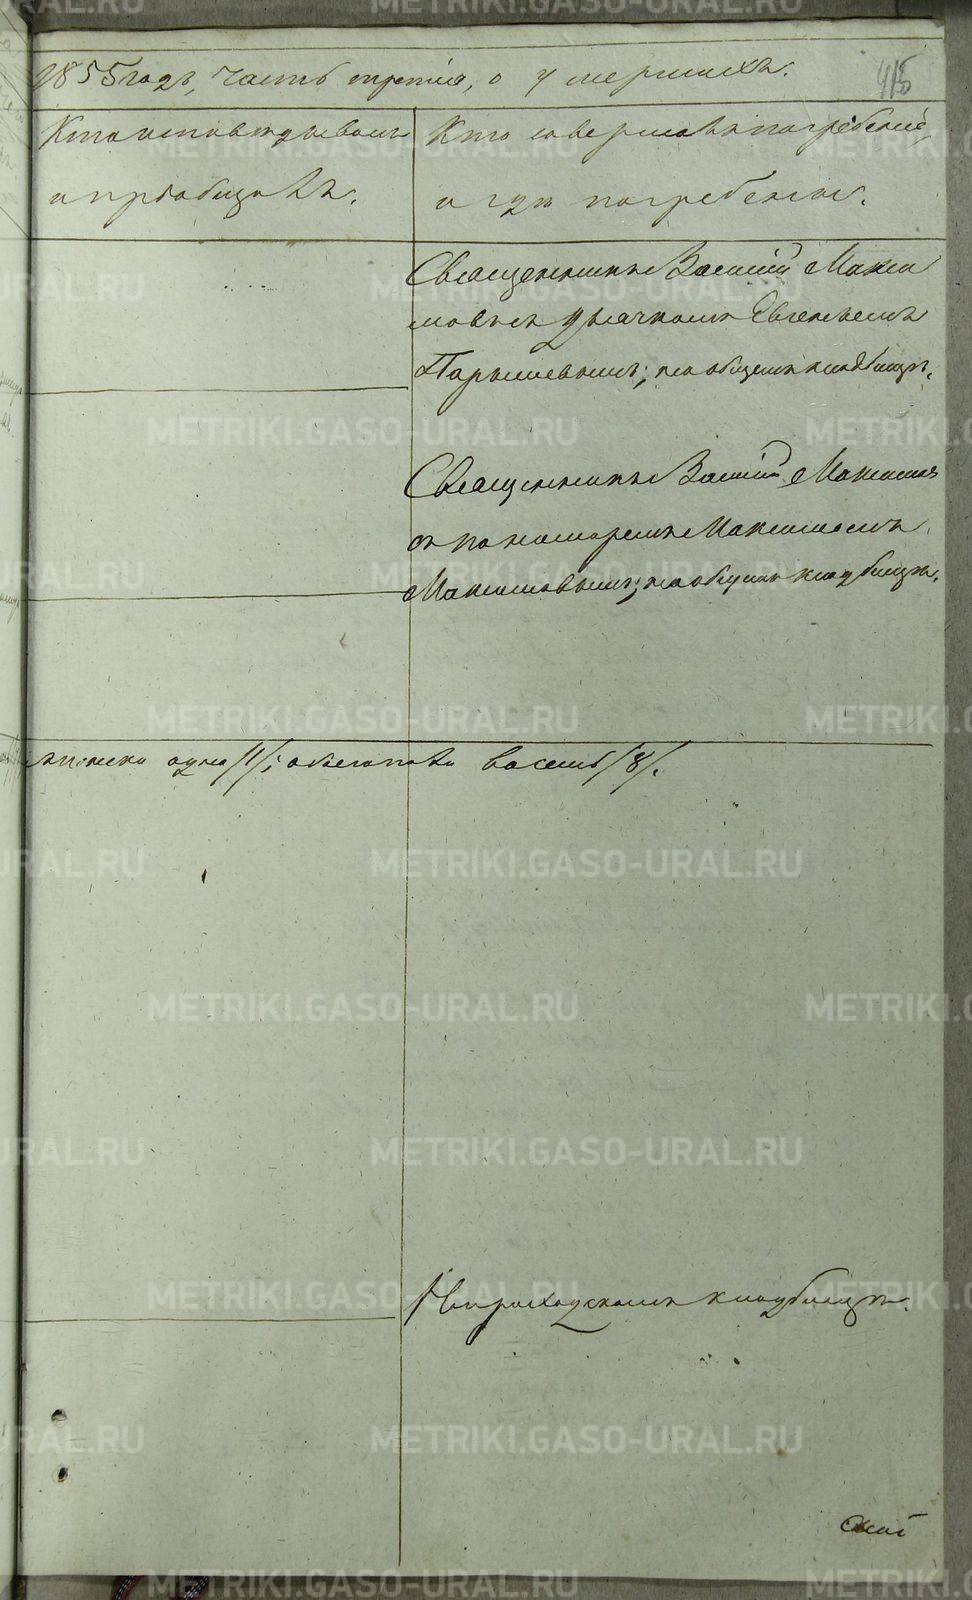 1855 годъ, часть третія, о умершихъ.
415
Кто исповѣдывалъ
и пріобщалъ.
Кто совершалъ погребеніе,
и гдѣ погребены.
Священникъ Василій Макси
мовъ съ дьячкомъ Евгеніемъ
Парышевымъ; на общемъ кладбищѣ.
Священникъ Василій Максимовъ
съ пономаремъ Максимомъ
Максимовымъ; на общемъ кладбищѣ.
одна /1/; обоего пола восемь /8/.
приходскомъ кладбищѣ.
METRIKI.GASO-URAL.RU